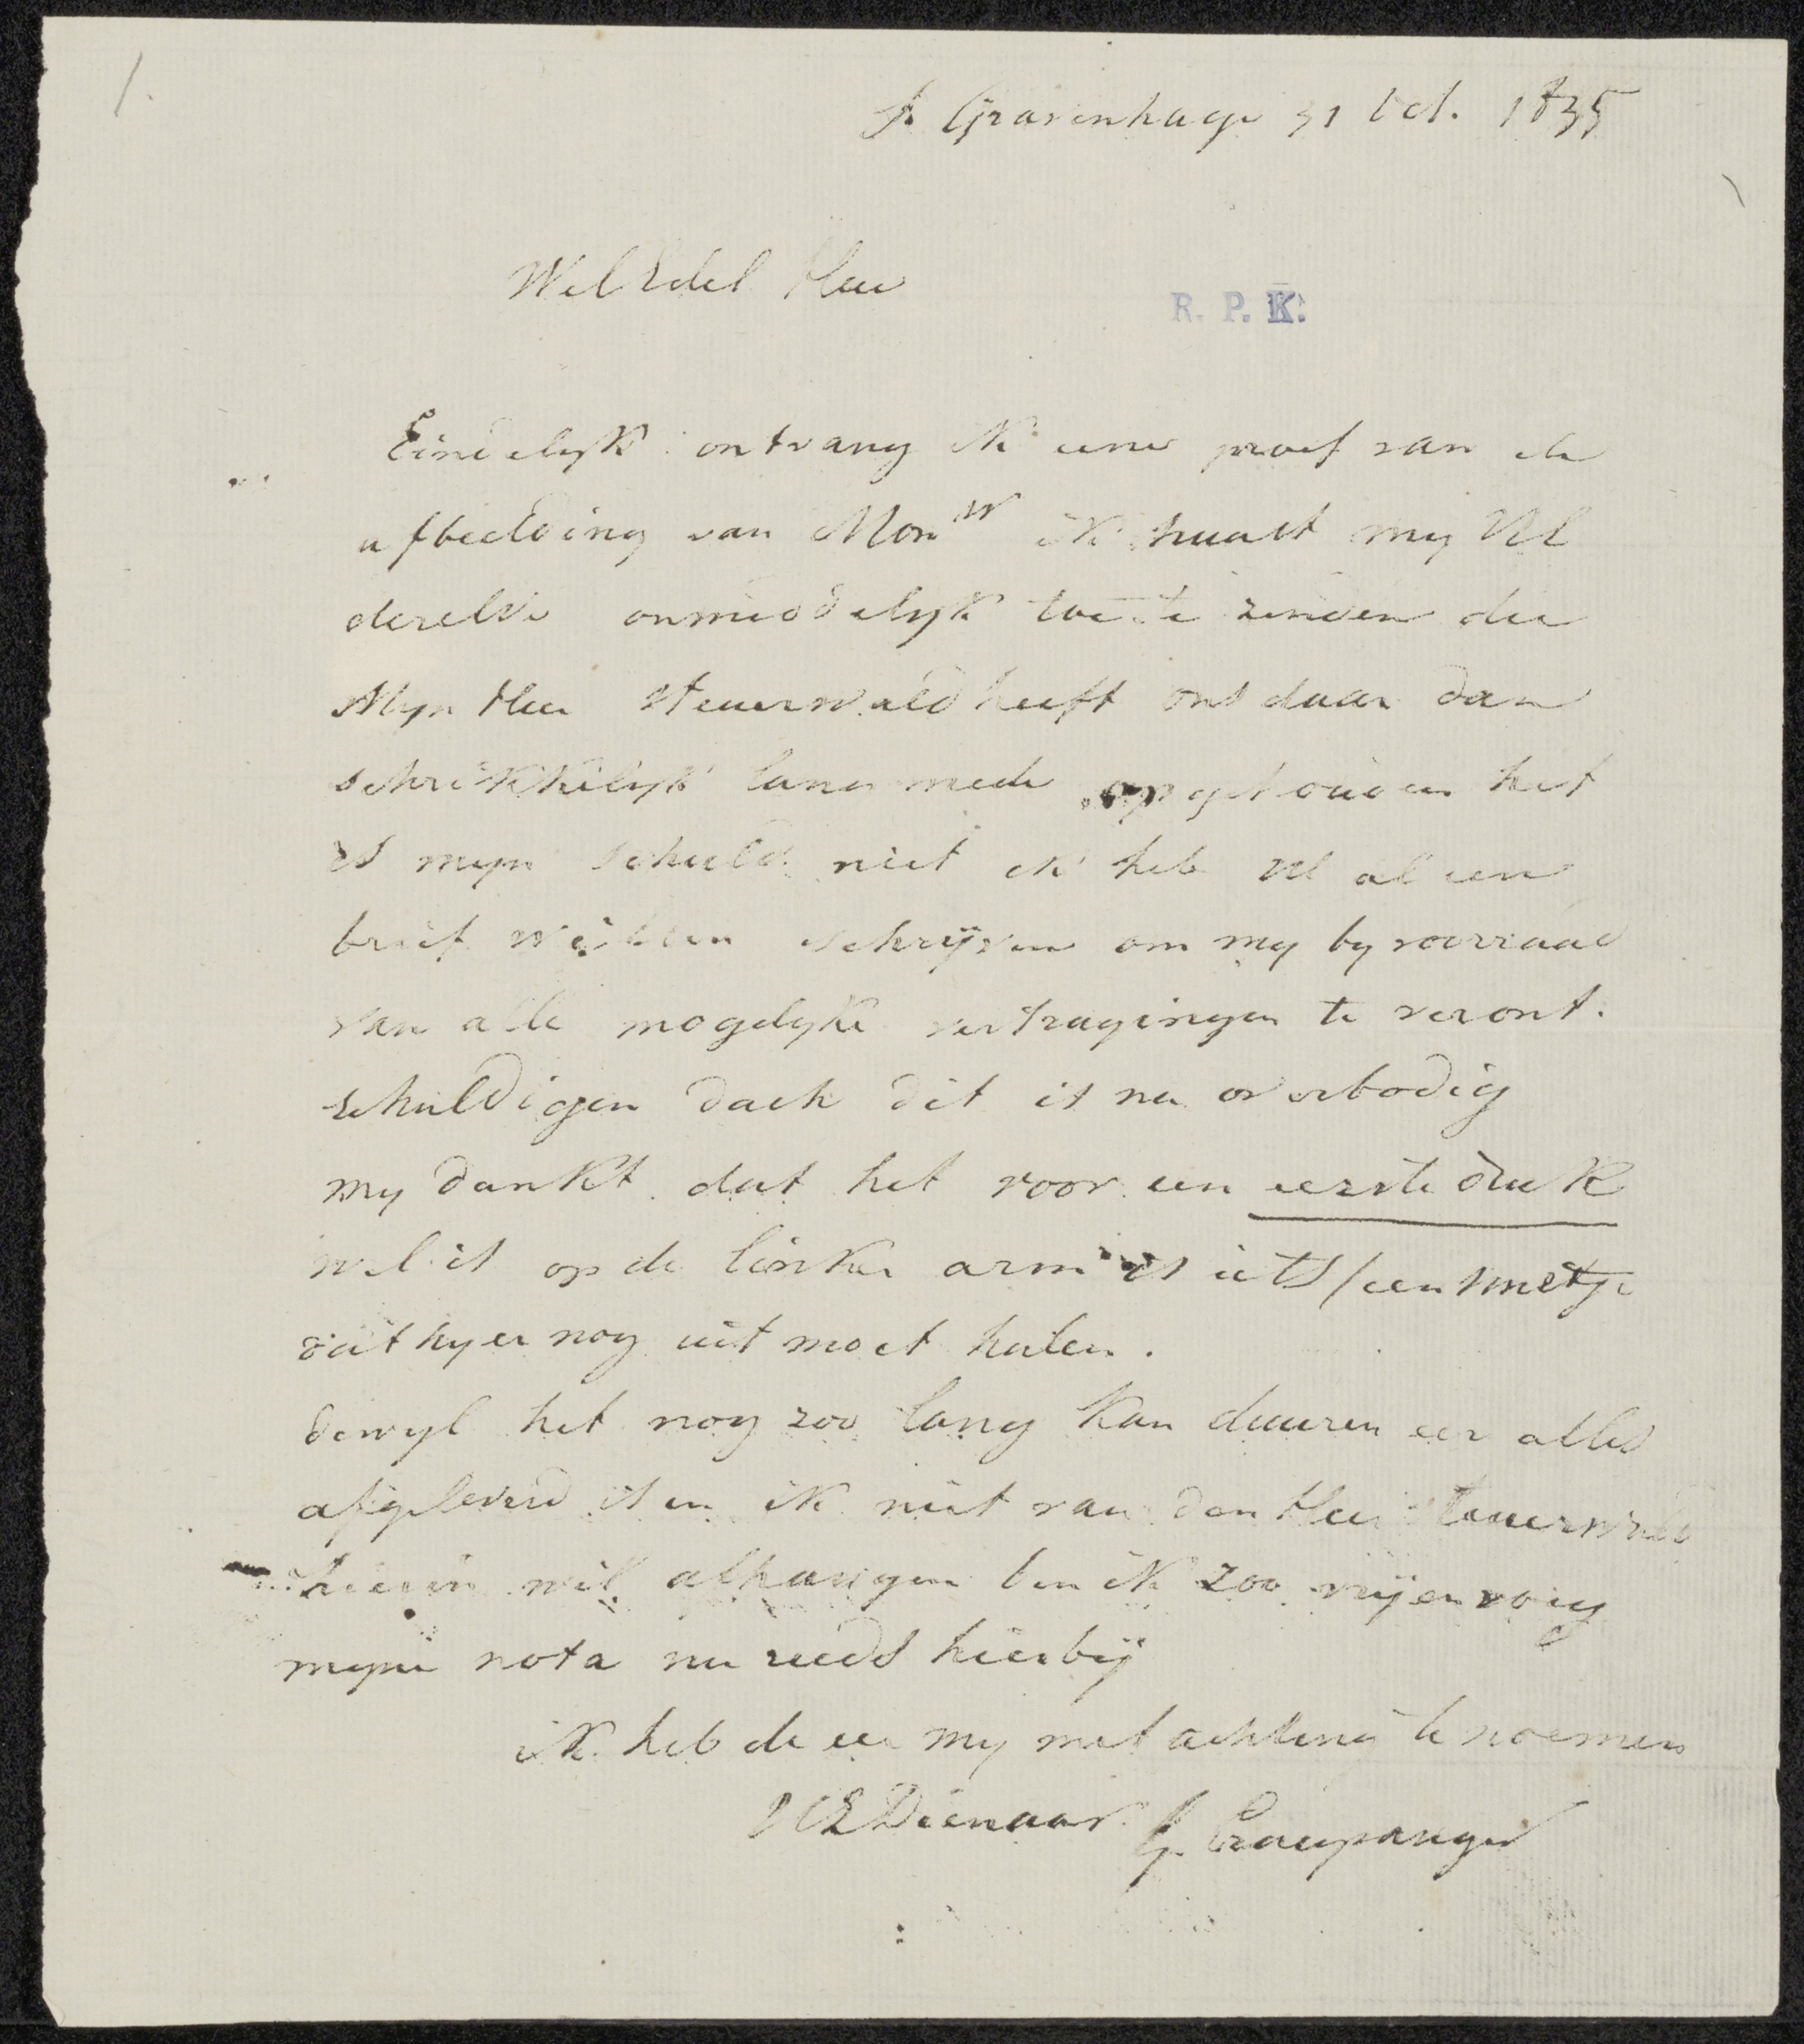 1.
s Gravenhage 31 Oct. 1835
Wel Edel Heer
R. P. K.
Eindelyk ontvang ik eene proef van de
afbeelding van Mons ik haast my UE
dezelve onmiddelyk toe te zenden de
Myn Heer Steuerwald heeft ons daar dan
schrikkelyk lang mede opgehouden het
is myn schuld niet ik heb UE al een
brief willen schrijven om my by voorraad
van alle mogelyke vertragingen te veront.
schuldigen doch dit is nu overbodig
my dunkt dat het voor een eerste druk
wel is op de linker arm is iets / een smetje
dat hy er nog uit moet halen.
dewyl het nog zoo lang kan duuren eer alles
afgeleverd is en ik niet van den Heer Steuerwald
hierin wil afhangen ben ik zoo vrij en voeg
myne nota nu reeds hierbij
ik heb de eer my met achting te noemen
UE Dienaar G. Craeyvanger